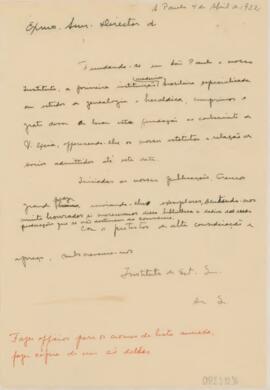 S. Paulo 4 de Abril de 1922
Exmo. Snr. Director d
Fundando-se em São Paulo o nosso
Instituto, a primeira instituição brasileira especializada
em estudos de genealogia e heraldica, cumprimos o
grato dever de levar esta fundação ao conhecimento de
V. Excia, offerecendo-lhe os nossos estatutos e relação de
socios admittidos até esta data.
Iniciadas as nossas publicações, teremos
grande prazer enviando-lhe exemplares,
muito honrados si merecermos dessa bibliotheca
Com os protestos de alta consideração e
apreço, subscrevemo-nos
Instituto de Est. G.
Fazer officios para os nomes da lista annexa,
fazer copia de um só delles.